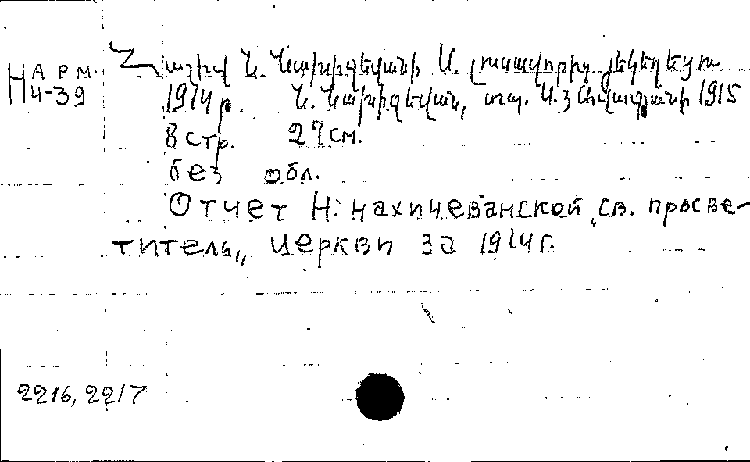 НАРМ
4-39
Հաշիվ Ն. Նախիջեվանի Ս. Լուսավորիչ եկեղեցու
1914 թ. Ն. Նախիջեվան, տպ. 1915
8 стр. 27 см.
без обл.
Отчет Н: Нахичеванской „св. просве-
титель„ церкви за 1914 г.
2216, 2217